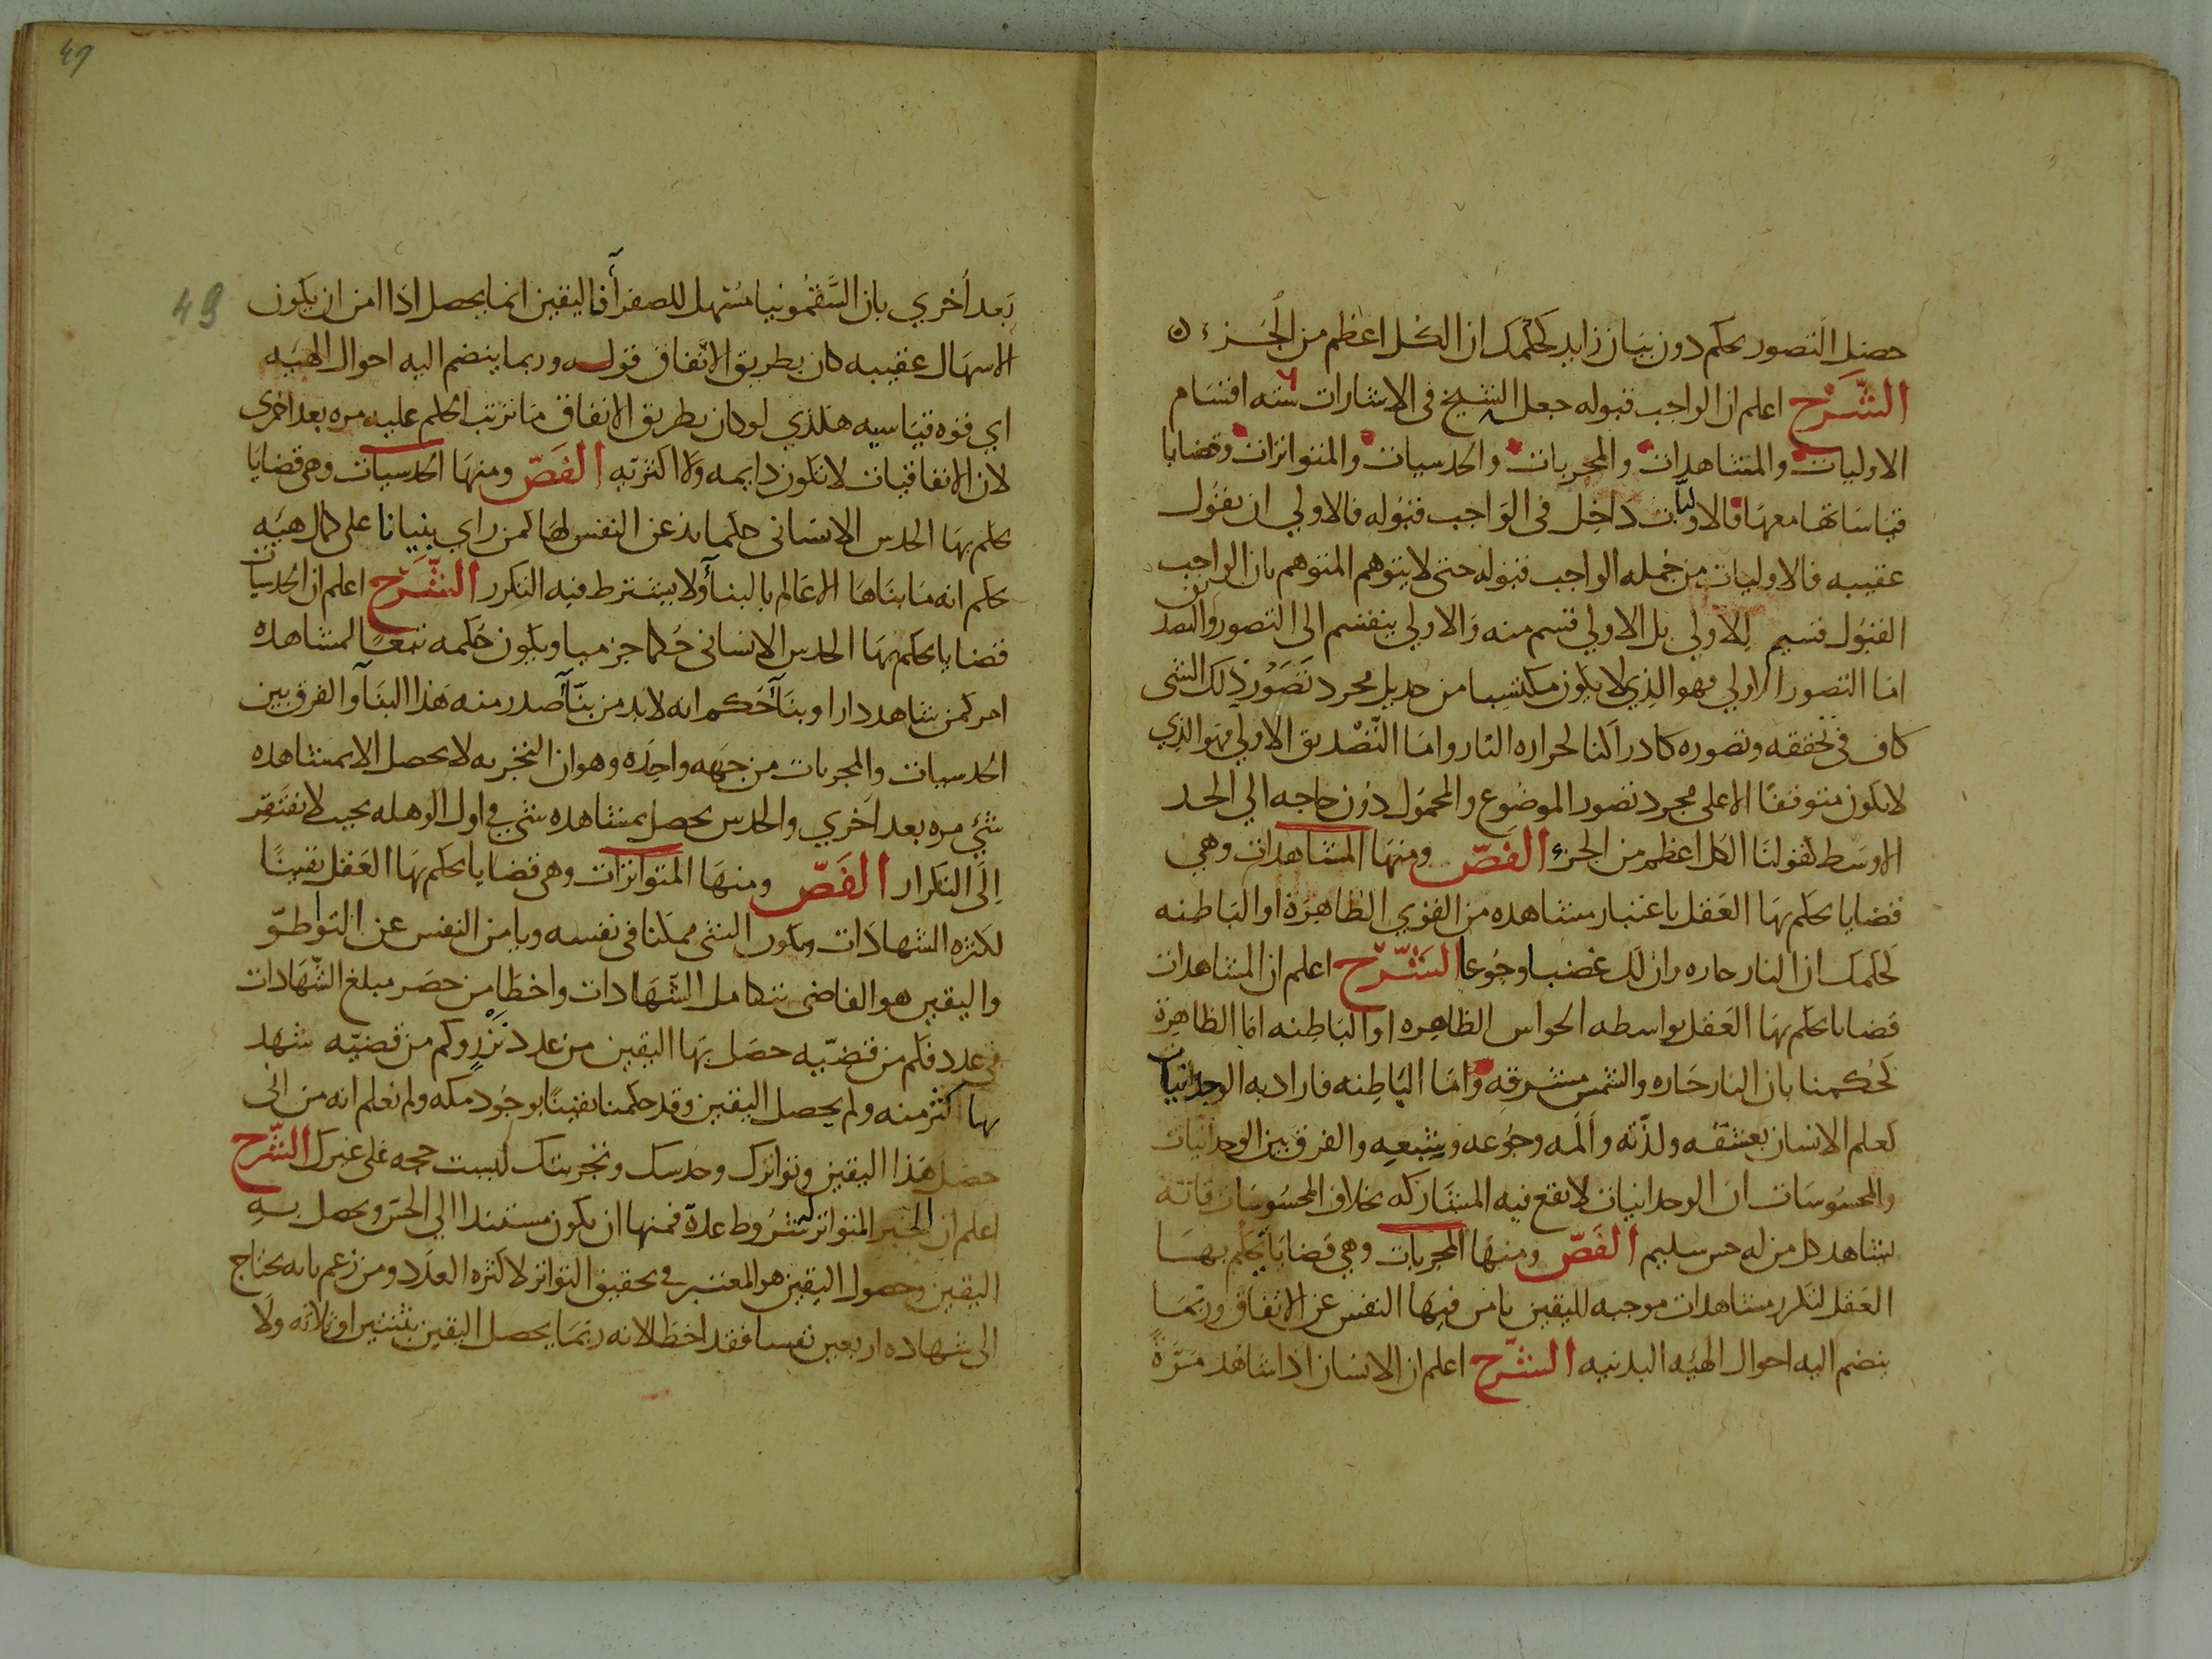 حصل التصور يحكم دون بيان زايد كحكمك ان الكل اعظم من الجزء
الشرح اعلم ان الواجب قبوله جعل الشيخ فى الاشارات سته اقسام
الاوليات والمشاهدات والمجربات والحدسيات والمتواترات وقضايا
قياساتها معها فالاوليات داخل فى الواجب قبوله فالاولي ان يقول
عقيبه فالاوليات من جمله الواجب قبوله حتى لا يتوهم المتوهم بان الواجب
القبول قسيم للاولي بل الاولي قسم منه والاولي ينقسم الى التصور والتصديق
اما التصور الاولي فهو الذي لا يكون مكتسبا من حد بل مجرد تصور ذلك الشى
كاف فى تحققه وتصوره كادراكنا لحراره النار واما التصديق الاولي فهو الذي
لا يكون متوقفا الا على مجرد تصور الموضوع والمحمول دون حاجه الي الحد
الاوسط كقولنا الكل اعظم من الجزء الفص ومنها المشاهدات وهي
قضايا يحكم بها العقل باعتبار مشاهده من القوي الظاهرة او الباطنه
كحكمك ان النار حاره وان لك غضبا وجوعا الشرح اعلم ان المشاهدات
قضايا يحكم بها العقل بواسطه الحواس الظاهره او الباطنه اما الظاهرة
كحكمنا بان النار حاره والشمس مشرقه واما الباطنه فاراد به الوجدانيات
كعلم الانسان بعشقه ولذته والمه وجوعه وشبعه والفرق بين الوجدانيات
والمحسوسات ان الوجدانيات لا يقع فيه المشاركه بخلاف المحسوسات فانه
يشاهد كل من له حس سليم الفص ومنها المجربات وهي قضايا يحكم بها
العقل لتكرر مشاهدات موجبه لليقين يامن فيها النفس عن الاتفاق وربما
ينضم اليه احوال الهيه البدنيه الشرح اعلم ان الانسان اذا شاهد مرة
49
49
بعد اخري بان السقمونيا مسهل للصفرآ فاليقين انما يحصل اذا امن ان يكون
الاسهال عقيبه كان بطريق الاتفاق قوله وربما ينضم اليه احوال الهيه
اي قوه قياسيه هكذي لو كان بطريق الاتفاق ما ترتب الحكم عليه مره بعد اخرى
لان الاتفاقيات لا تكون دايمه ولا اكثريه الفص ومنها الحدسيات وهى قضايا
يحكم بها الحدس الانسانى حكما يذعن النفس لها كمن راي بنيانا على كمال هيه
يحكم انه ما بناها الا عالم بالبنآ ولا يشترط فيه التكرر الشرح اعلم ان الحدسيات
قضايا يحكم بها الحدس الانسانى حكما جزميا ويكون حكمه تبعا لمشاهده
امر كمن شاهد دارا وبنآ حكم انه لا بد من بنآ صدر منه هذا البنآ والفرق بين
الحدسيات والمجربات من جهه واحده وهو ان التجربه لا يحصل الا بمشاهده
شئ مره بعد اخري والحدس يحصل بمشاهده شى في اول الوهله بحيث لا يفتقر
الى التكرار الفص ومنها المتواترات وهى قضايا يحكم بها العقل يقينا
لكثره الشهادات ويكون الشى ممكنا فى نفسه ويامن النفس عن التواطو
واليقين هو القاضى بتكامل الشهادات واخطا من حصر مبلغ الشهادات
فى عدد فكم من قضيه حصل بها اليقين من عدد نزر وكم من قضيه شهد
بها اكثر منه ولم يحصل اليقين وقد حكمنا يقينا بوجود مكه ولم نعلم انه من اى
حصل هذا اليقين وتواترك وحدسك وتجربتك ليست حجه على غيرك الشرح
اعلم ان الخبر المتواتر شروط عدة فمنها ان يكون مستندا الي الحس ويحصل به
اليقين وحصول اليقين هو المعتبر في تحقيق التواتر لا كثره العدد ومن زعم بانه يحتاج
الى شهاده اربعين نفسا فقد اخطا لانه ربما يحصل اليقين بثنين او ثلاثه ولا